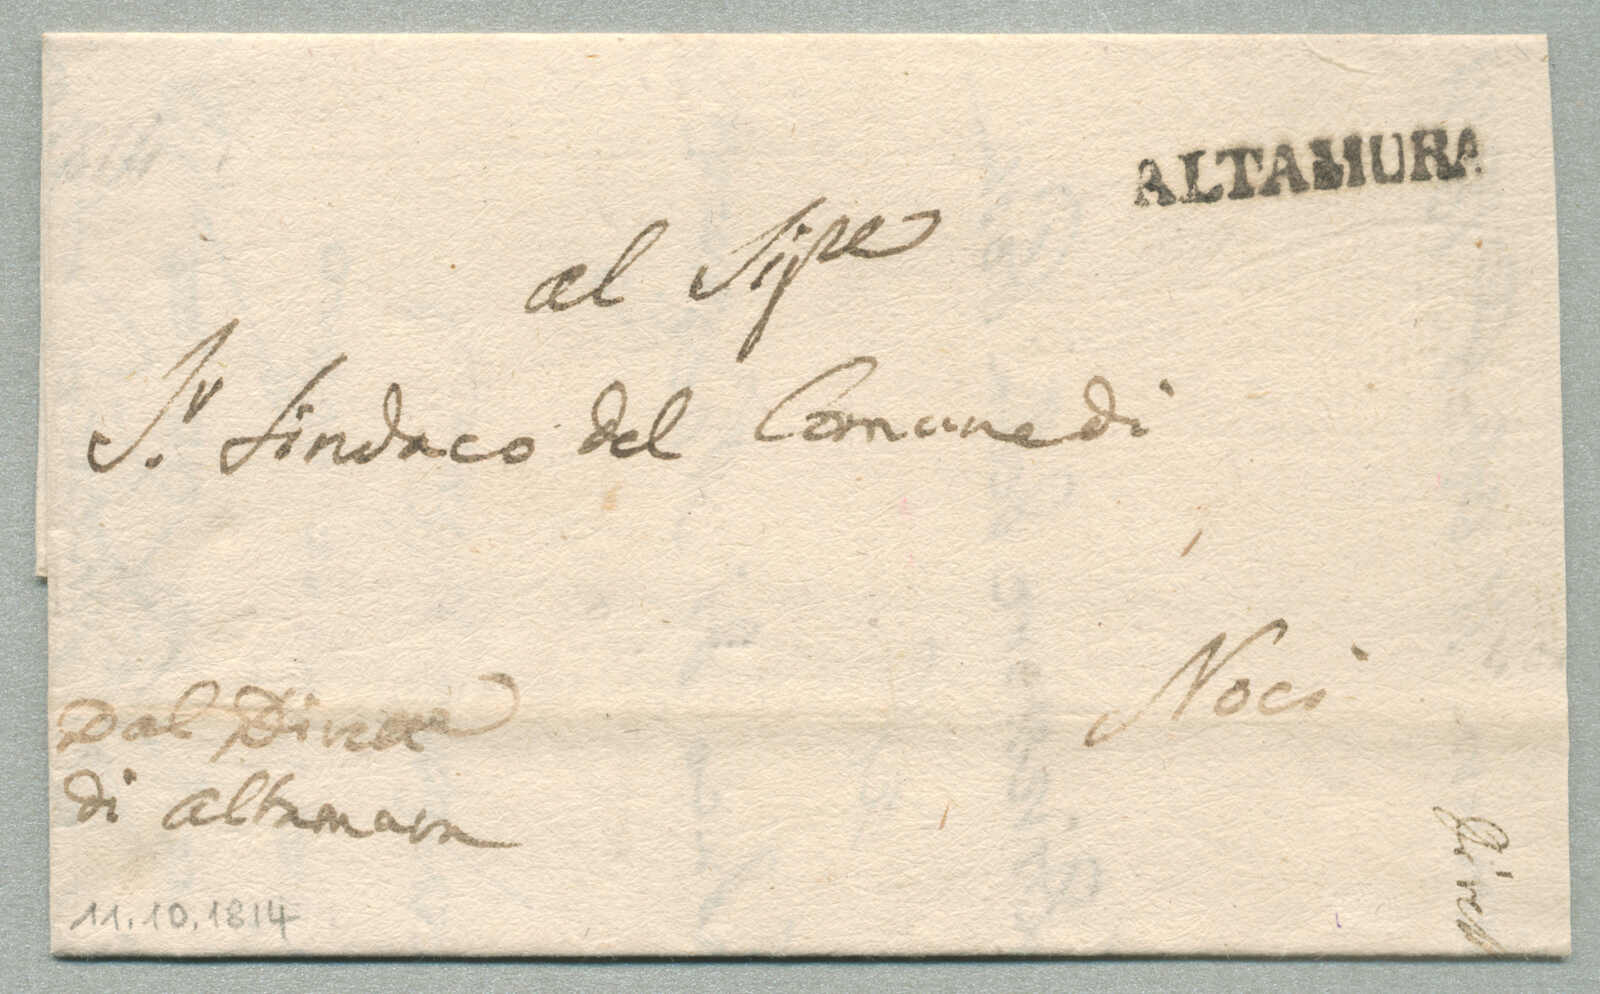 ALTAMURA
al Sig.re
S.r Sindaco del Comune di
Noci
Dal Diret.re
di Altamura
11.10.1814